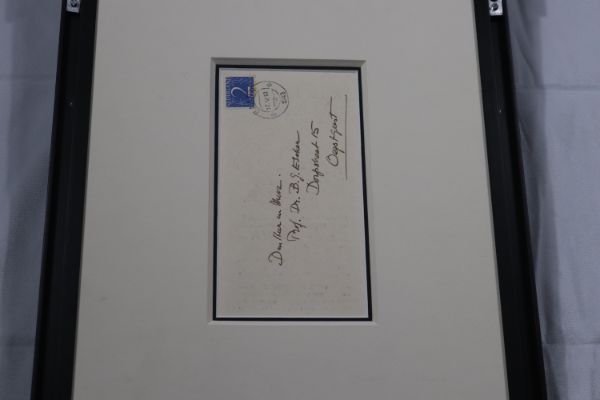 Den Heer en Mevr.
Prof. Dr. B. G. Escher
Dorpstraat 15
Oegstgeest
2